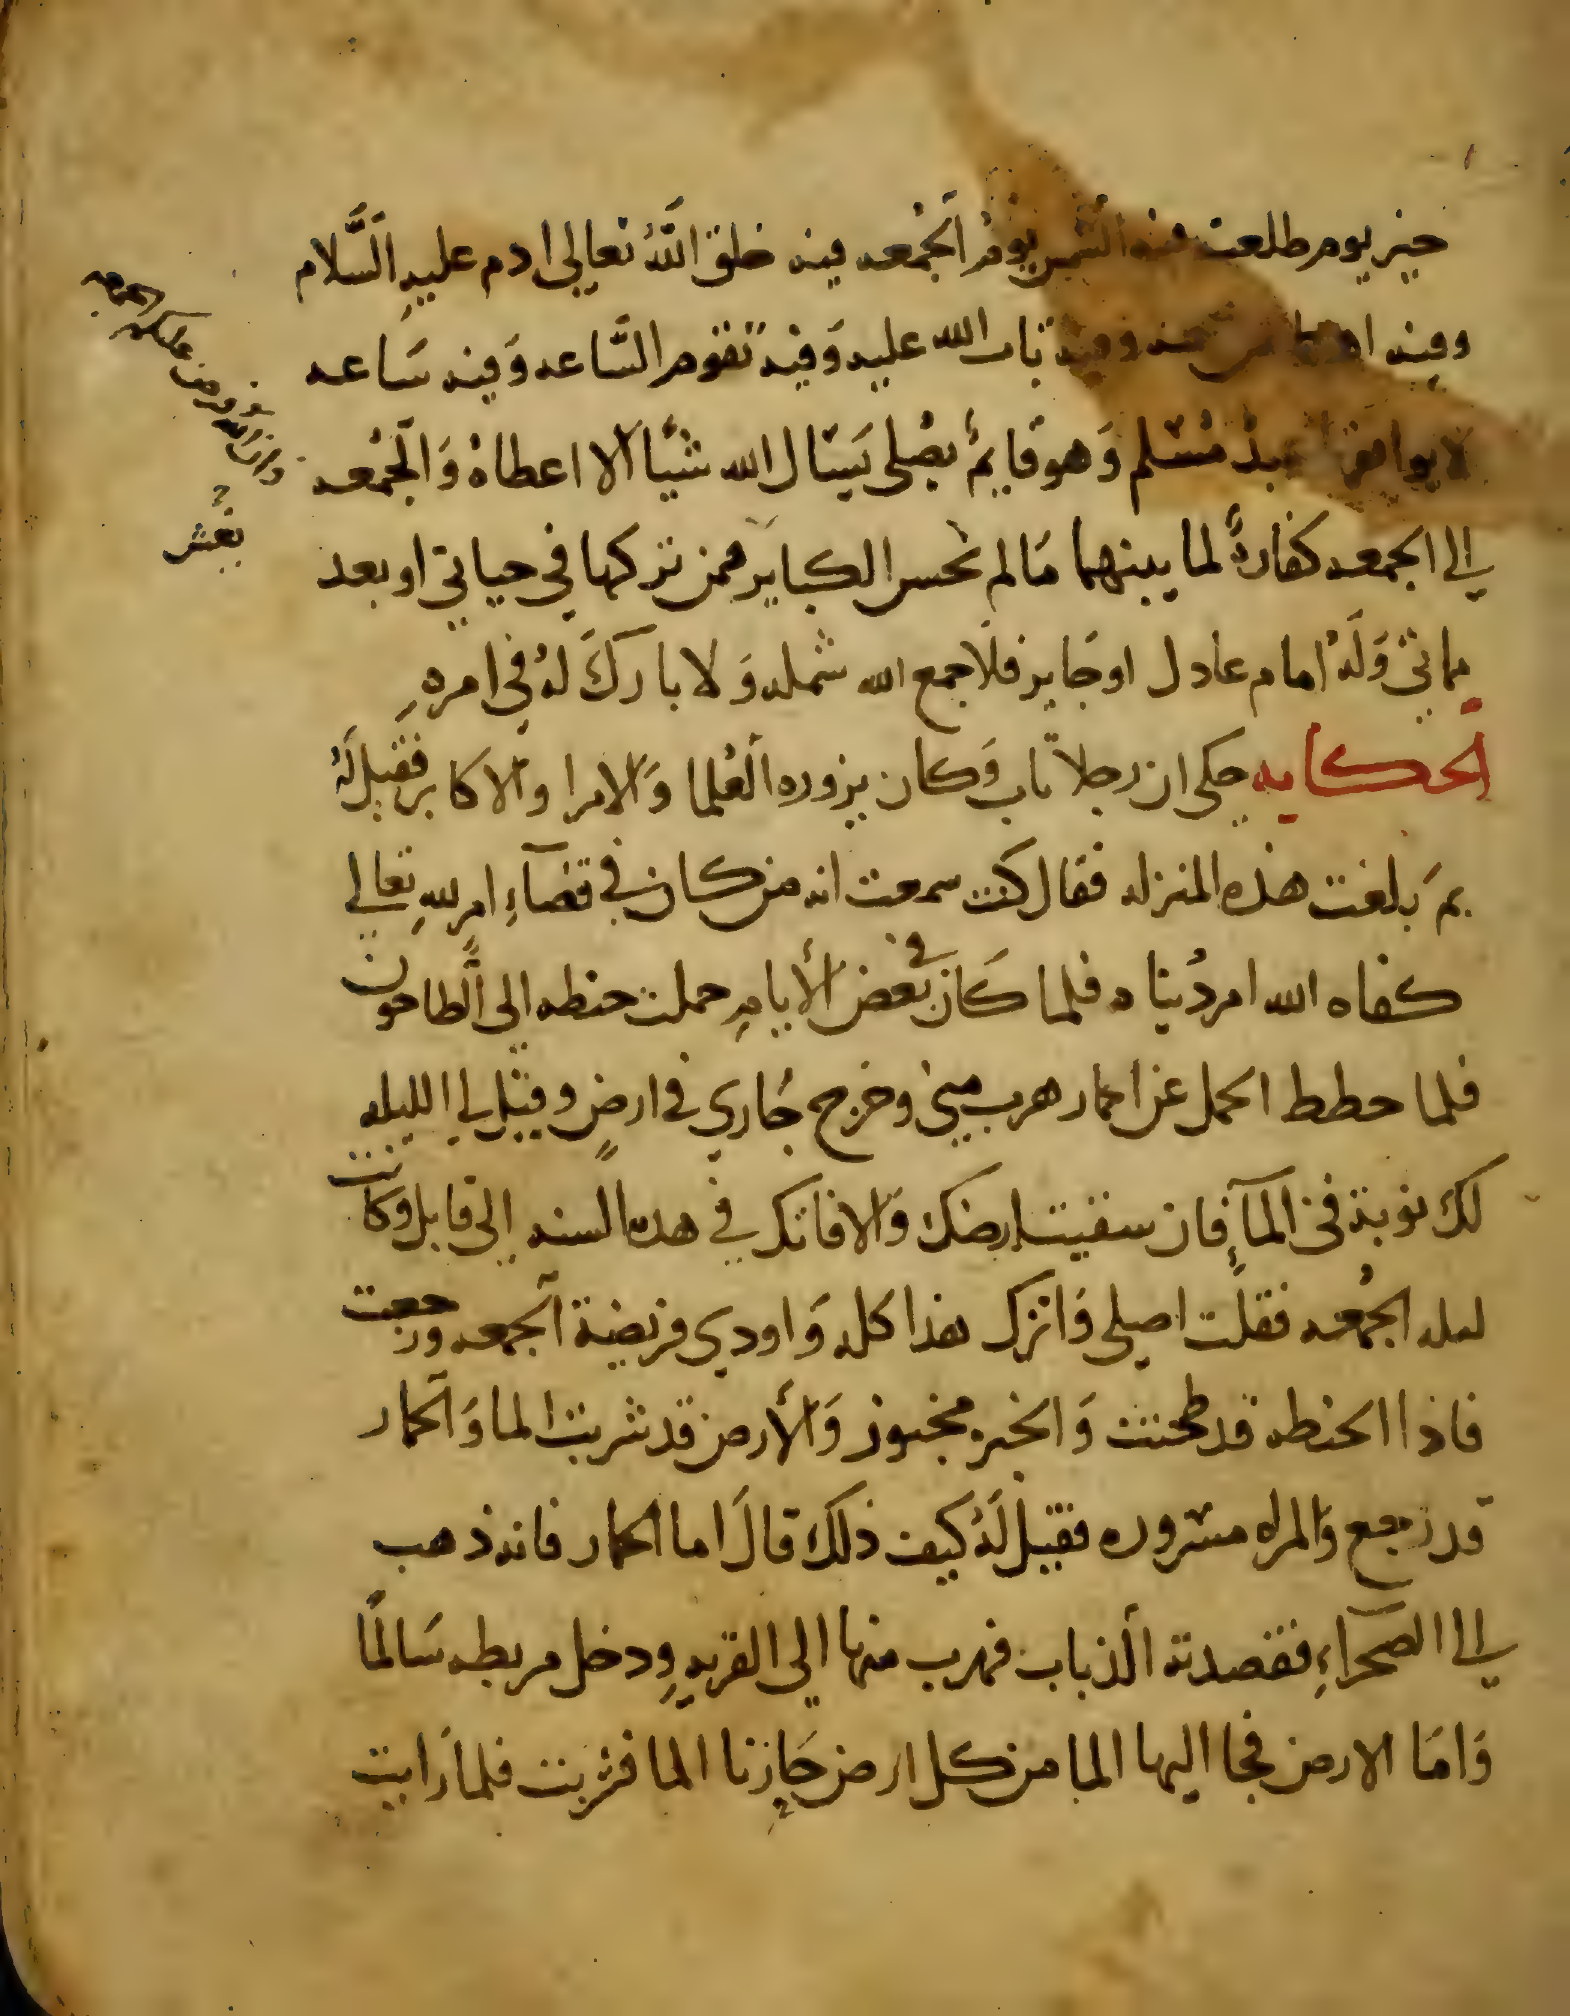 خير يوم طلعت فيه الشمس يوم الجمعه فيه خلق اللَّهُ تعالي ادم عليهِ السَّلام
وفيه اهبط من وفيه تاب الله عليه وَفيه تقوم السَّاعه وَفيه سَاعه
لا يوافقها عبدٌ مُسْلم وَهو قايمٌ يصْلي يَسَال الله شيًا الا اعطاهُ وَالجُمْعه
الي الجمعه كفارةٌ لما بينهما مَا لم تحسن الكباير فمن تركها في حياتي او بعد
مماتي وَلَهُ امام عادل او جَاير فلا جمع الله شمله وَلا باركَ لهُ في امرهِ
الحكايه حكي ان رجلاً تاب وَكان يزوره العُلما وَالامرا والاكابر فقيل لهُ
بمَ بلغت هذه المنزله فقال كنت سمعت انه من كان في قضآءِ امر للهِ تعالي
كفاه الله امر دُنياه فلما كَان في بعض الأيامِ حملت حنطه الي الطاحون
فلما حططت الحمل عن الحمار هرب مني وخرج جَاري في ارضٍ وقيل لي الليله
لك نوبة في المآءِ فان سقيت ارضك وَالا فاتك في هذه السنه الي قابل وكانت
ليله الجُمعه فقلت اصلي وَاترك هذا كله وَاودي فريضة الجمعه ورجعت
فاذا الحنطه قد طحنت وَالخبز مخبوز وَالأرض قد شربت الما وَالحمار
قد رجع وَالمراه مسروره فقيل لَهُ كيف ذلك قالَ اما الحمار فانه ذهب
الي الصحراءِ فقصدته الذياب فهرب منها الي القريهِ ودخل مربطه سَالمًا
وَامَا الارض فجا اليها الما من كل ارض جَازنا الما فشربت فلما رَايت
وان الله فرض عليكم الجمعه